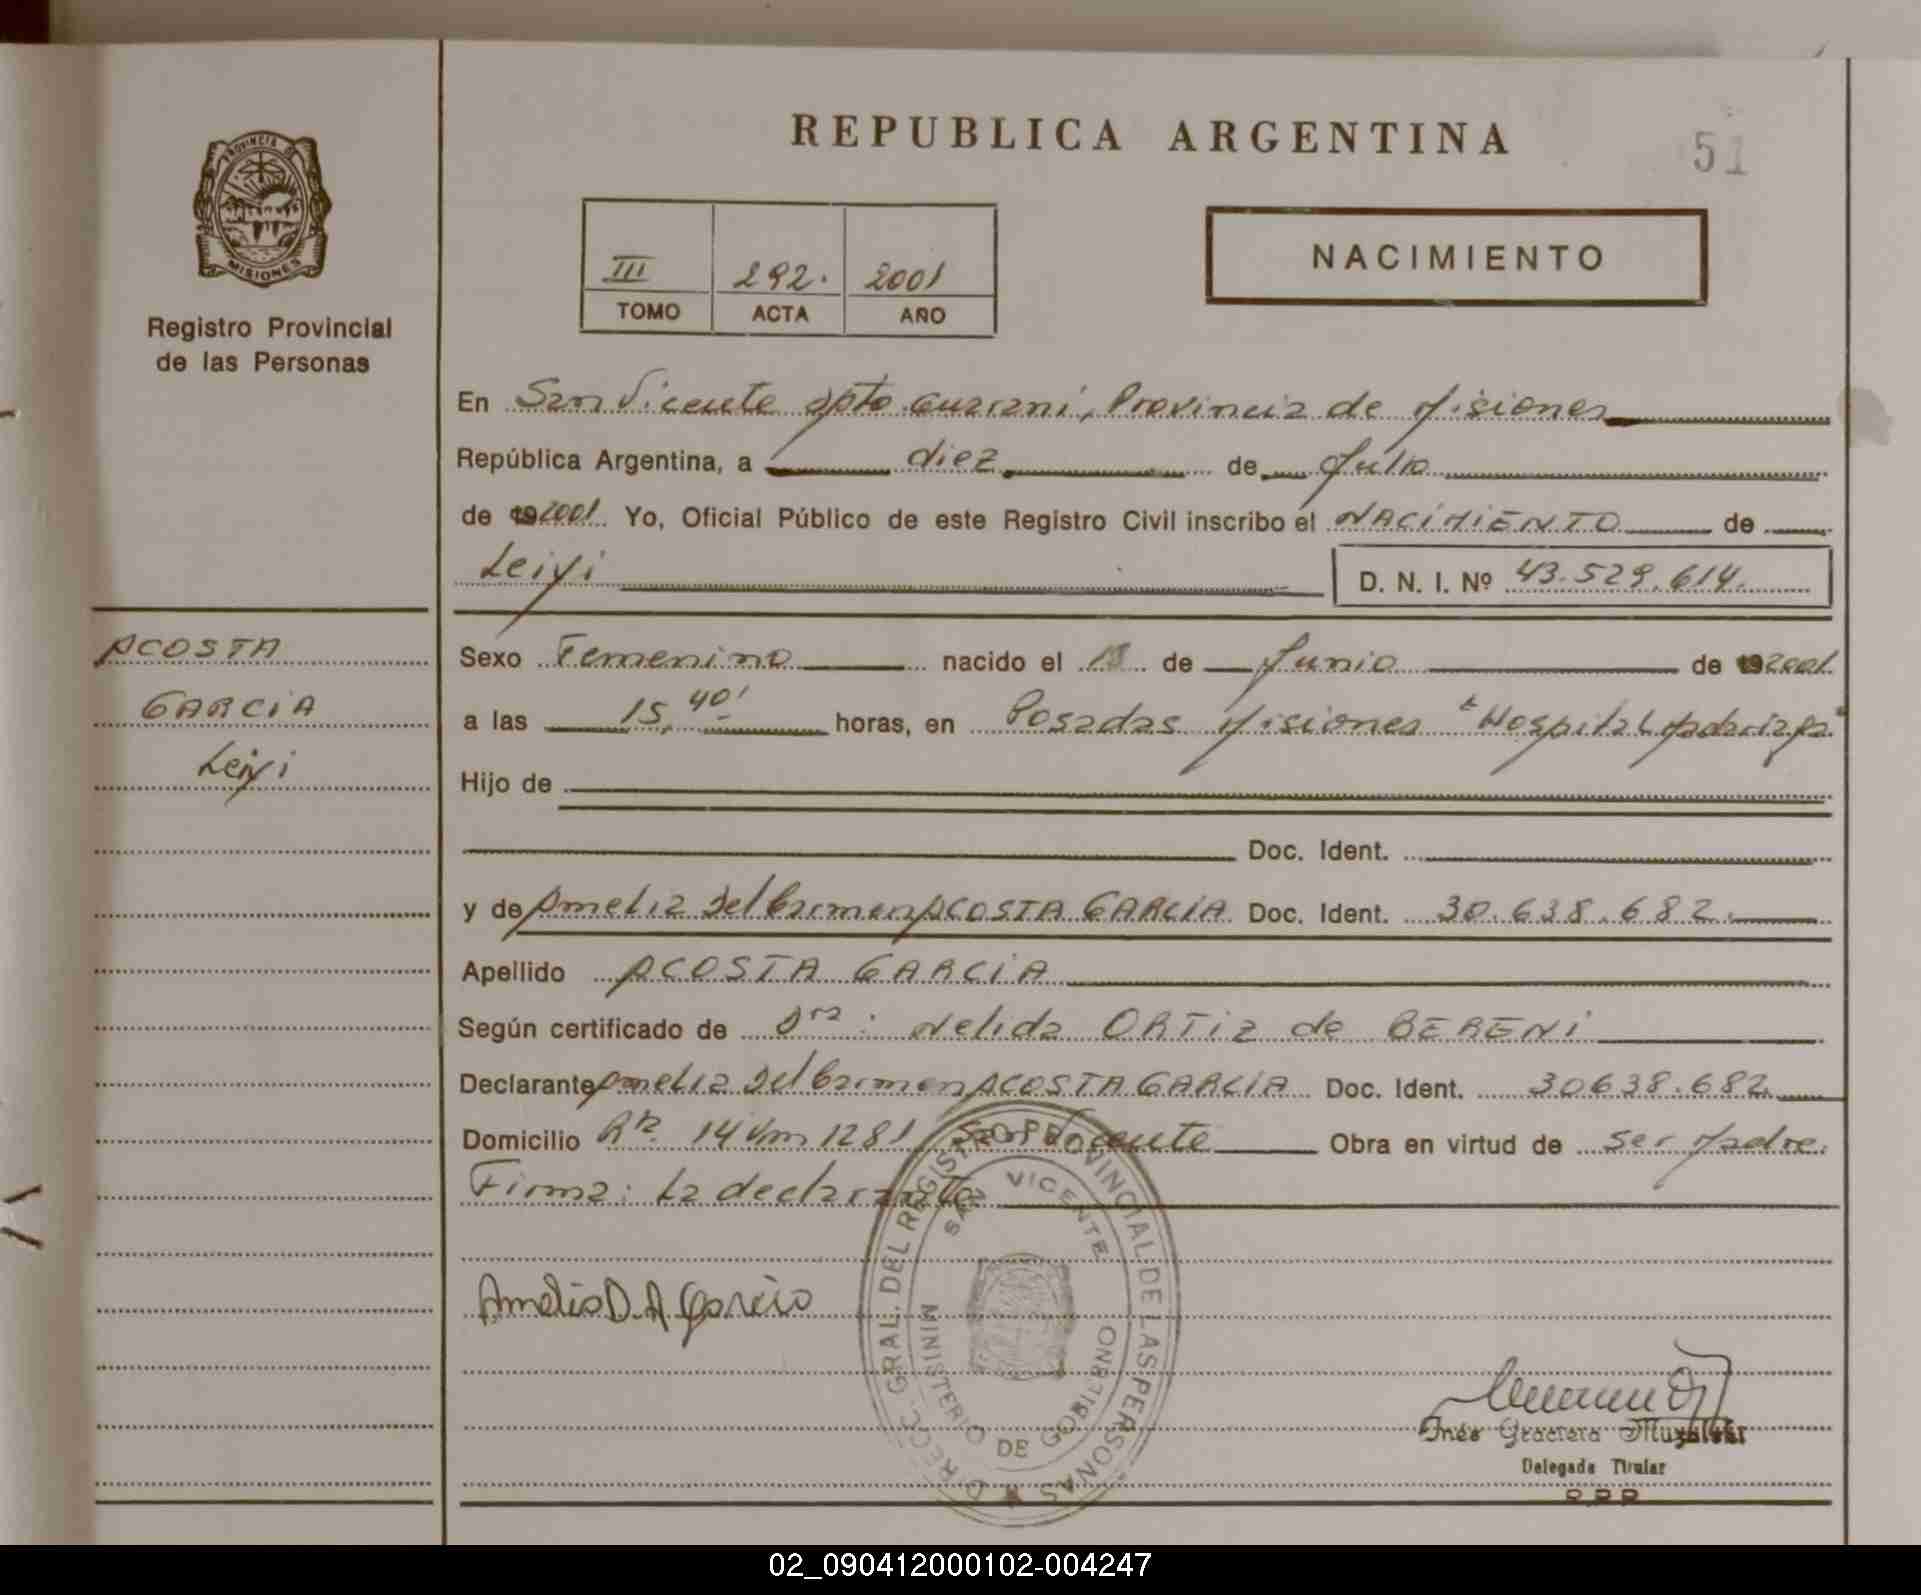 REPUBLICA ARGENTINA
51
PROVINCIA DE
MISIONES
Registro Provincial
de las Personas
III 292. 2001
TOMO ACTA AÑO
NACIMIENTO
En San Vicente Dpto Guaraní, Provincia de Misiones
República Argentina, a diez de Julio
de 192001. Yo, Oficial Público de este Registro Civil inscribo el NACIMIENTO de
Leiyi D. N. I. Nº 43.529.614.
ACOSTA
GARCIA
Leiyi
Sexo Femenino nacido el de Junio de 192001.
a las 15,40' horas, en Posadas Misiones "Hospital Madariaga"
Hijo de
Doc. Ident.
y de Amelia Del Carmen ACOSTA GARCIA Doc. Ident. 30.638.682.
Apellido ACOSTA GARCIA
Según certificado de Dra: Nelida ORTIZ de BERENI
Declarante Amelia Del Carmen ACOSTA GARCIA Doc. Ident. 30638.682
Domicilio 14 Km 1281 San Vicente Obra en virtud de ser Madre.
Firma: La declarante
Amelia D. A. Garcia
DIRECC. GRAL. DEL REGISTRO PROVINCIAL DE LAS PERSONAS
SAN VICENTE
MINISTERIO DE GOBIERNO
Inés Graciela
Delegada Titular
R P P
02_090412000102-004247